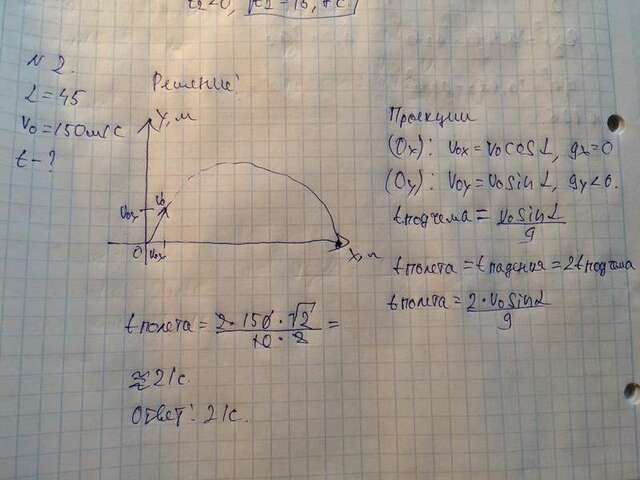 t2=0, t2=16,7с.
N 2.
Решение:
L = 45
V0 = 150 м/с
t - ?
Y, м
V0y
V0
0
V0x
X, м
Проекции
(Ox): V0x = V0 cos L, gx = 0
(Oy): V0y = V0 sin L, gy < 0.
t подъема = V0 sin L / g
t полета = t падения = 2t подъема
t полета = 2·V0 sin L / g
t полета = 2·150·√2 / 10·2 =
≈ 21с
Ответ: 21с.